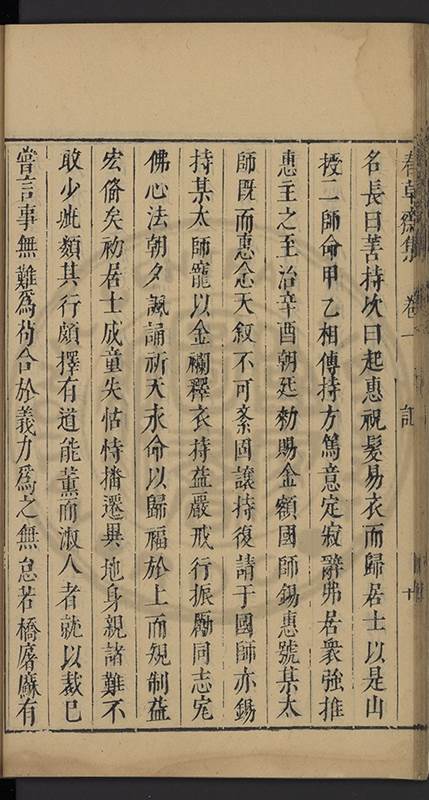 春草齋集 卷一 記 十
名長曰善持次曰起惠祝髮易衣而歸居士以是山
授二師命甲乙相傳持方篤意定寂辭弗居衆強推
惠主之至治辛酉朝廷勅賜金額國師錫惠號某太
師既而惠念天叙不可紊固讓持復請于國師亦錫
持某太師寵以金襴釋衣持益嚴戒行振勵同志完
佛心法朝夕諷誦祈天永命以歸福於上而規制益
宏偹矣初居士成童失怙恃播遷異地身親諸難不
敢少疵纇其行頗擇有道能薰而淑人者就以裁已
嘗言事無難爲茍合於義力爲之無怠若橋㕓廨有